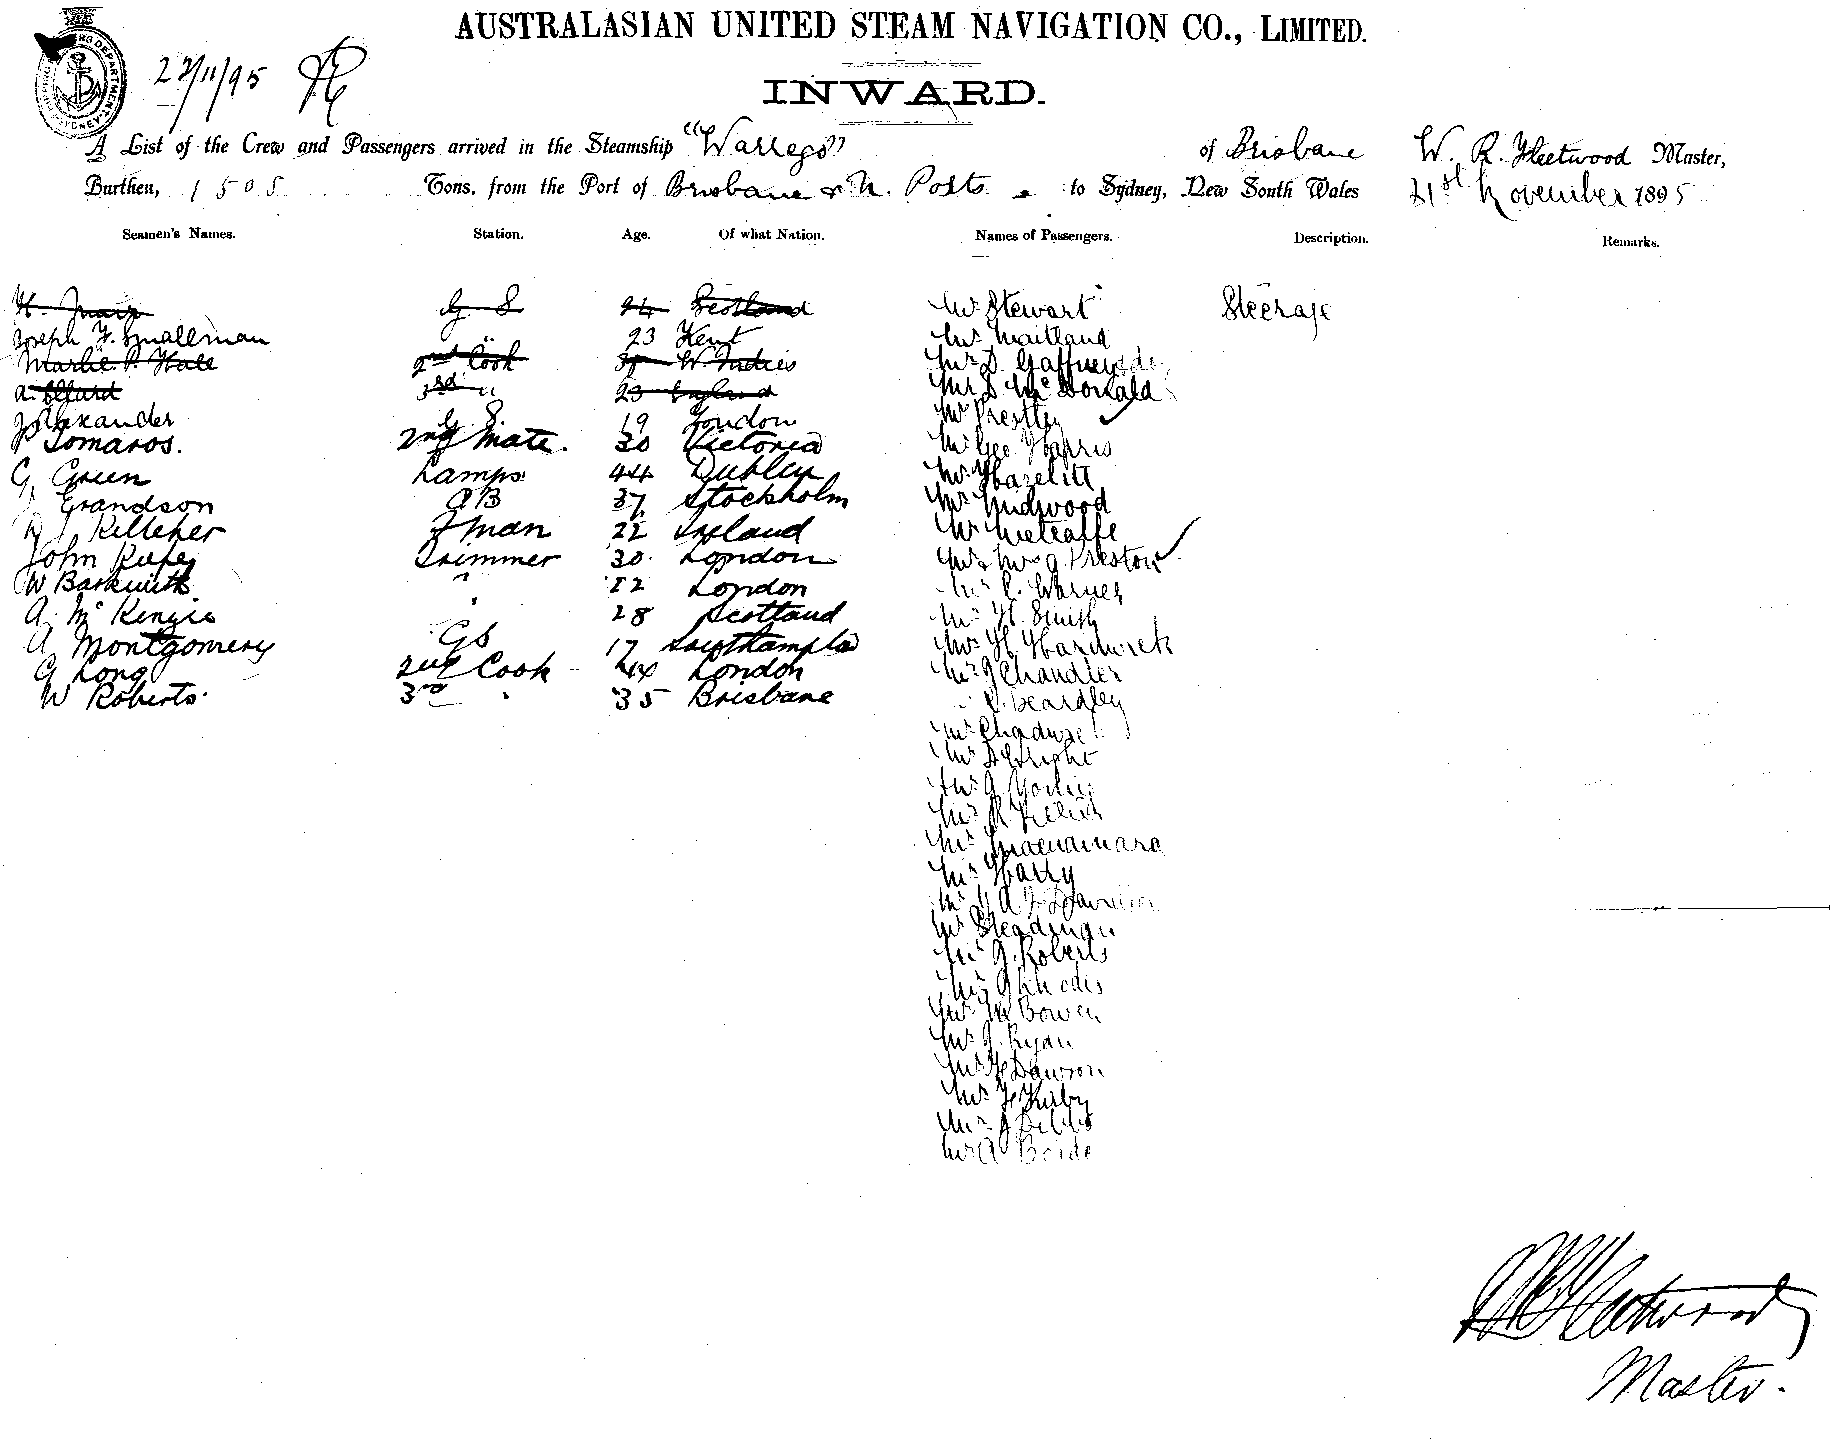 AUSTRALASIAN UNITED STEAM NAVIGATION CO., LIMITED.
22/11/95
INWARD.
A List of the Crew and Passengers arrived in the Steamship "Warrego" of Brisbane W. R. Fleetwood Master,
Burthen, 1505 Tons, from the Port of Brisbane & N. Ports to Sydney, New South Wales 21st November 1895
Seamen's Names. Station. Age. Of what Nation. Names of Passengers. Description. Remarks.
H. G S 24 Scotland Mr Stewart Steerage
Joseph F. Smallman " 23 Kent Mr Maitland
P. Hall 2nd Cook W. Indies Mr D. Gaffney
A. 3rd " 23 England Mr D McDonald
J Alexander G S 19 London Mr Prestley
P Tomaros. 2nd Mate. 30 Victoria Mr Geo Harris
G Green Lamps 44 Dublin Mr Hazelitt
J Grandson AB 37 Stockholm Mr
Kelleher Fman 22 Ireland Mr Metcalfe
John Trimmer 30 London Mr & Mrs Preston
W Barkwith " 22 London Mr Warner
A. McKenzie " 28 Scotland Mr H. Smith
A Montgomery GS 17 Southampton Mr H. Hardwick
G Long 2nd Cook 44 London Mr J Chandler
W Roberts. 3rd " 35 Brisbane Beardley
Mr
Mr
Mr
Mr
Mr Macnamara
Mr Harry
Mr
Mr Steadman
Mr J. Roberts
Mr Rhodes
Mr M Bowen
Mr J. Ryan
Mr Dawson
Mr F Kirby
Mr J Dibbs
Mr A
W R Fleetwood
Master.